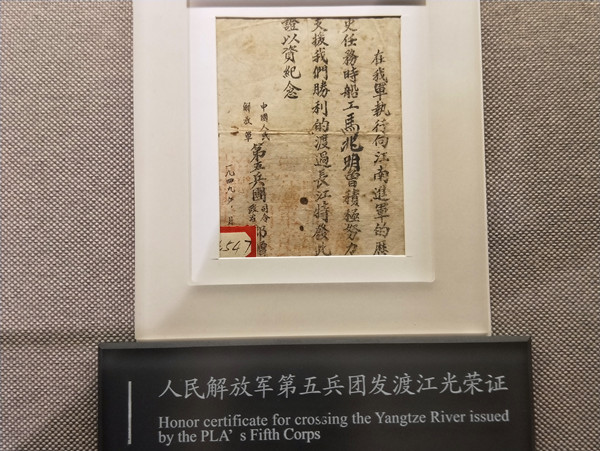 在我軍執行向江南進軍的歷
史任務時船工馬兆明曾積極努力
支援我們勝利的渡過長江特發此
證以資紀念
中國人民
解放軍
第五兵團
司令
一九四九
547
人民解放军第五兵团发渡江光荣证
Honor certificate for crossing the Yangtze River issued
by the PLA' s Fifth Corps